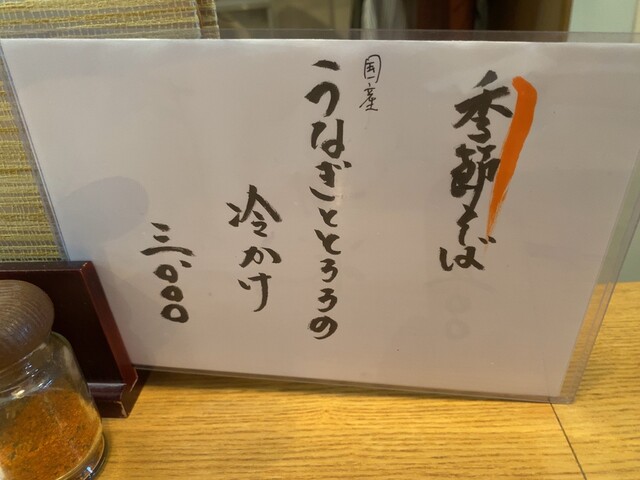 季節そば
国産
うなぎととろろの
冷かけ
三、000